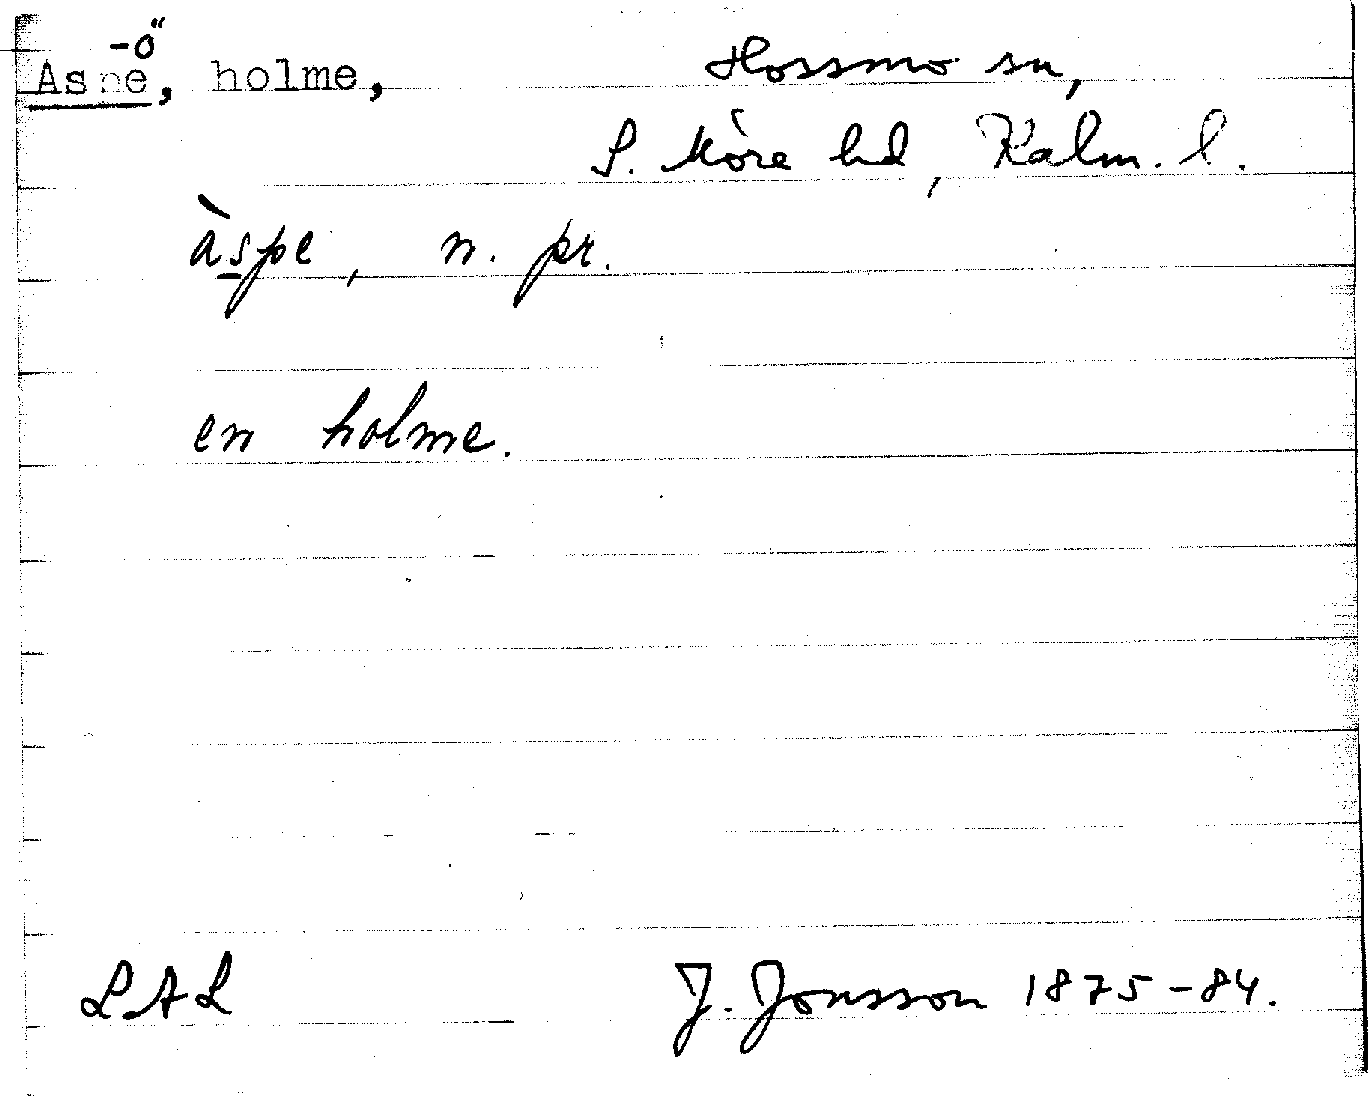 -ö
Aspe, holme, Hossmo sn,
S. Möre hd, Kalm. l.
àspe, n. pr.
en holme.
LAL J. Jonsson 1875-84.